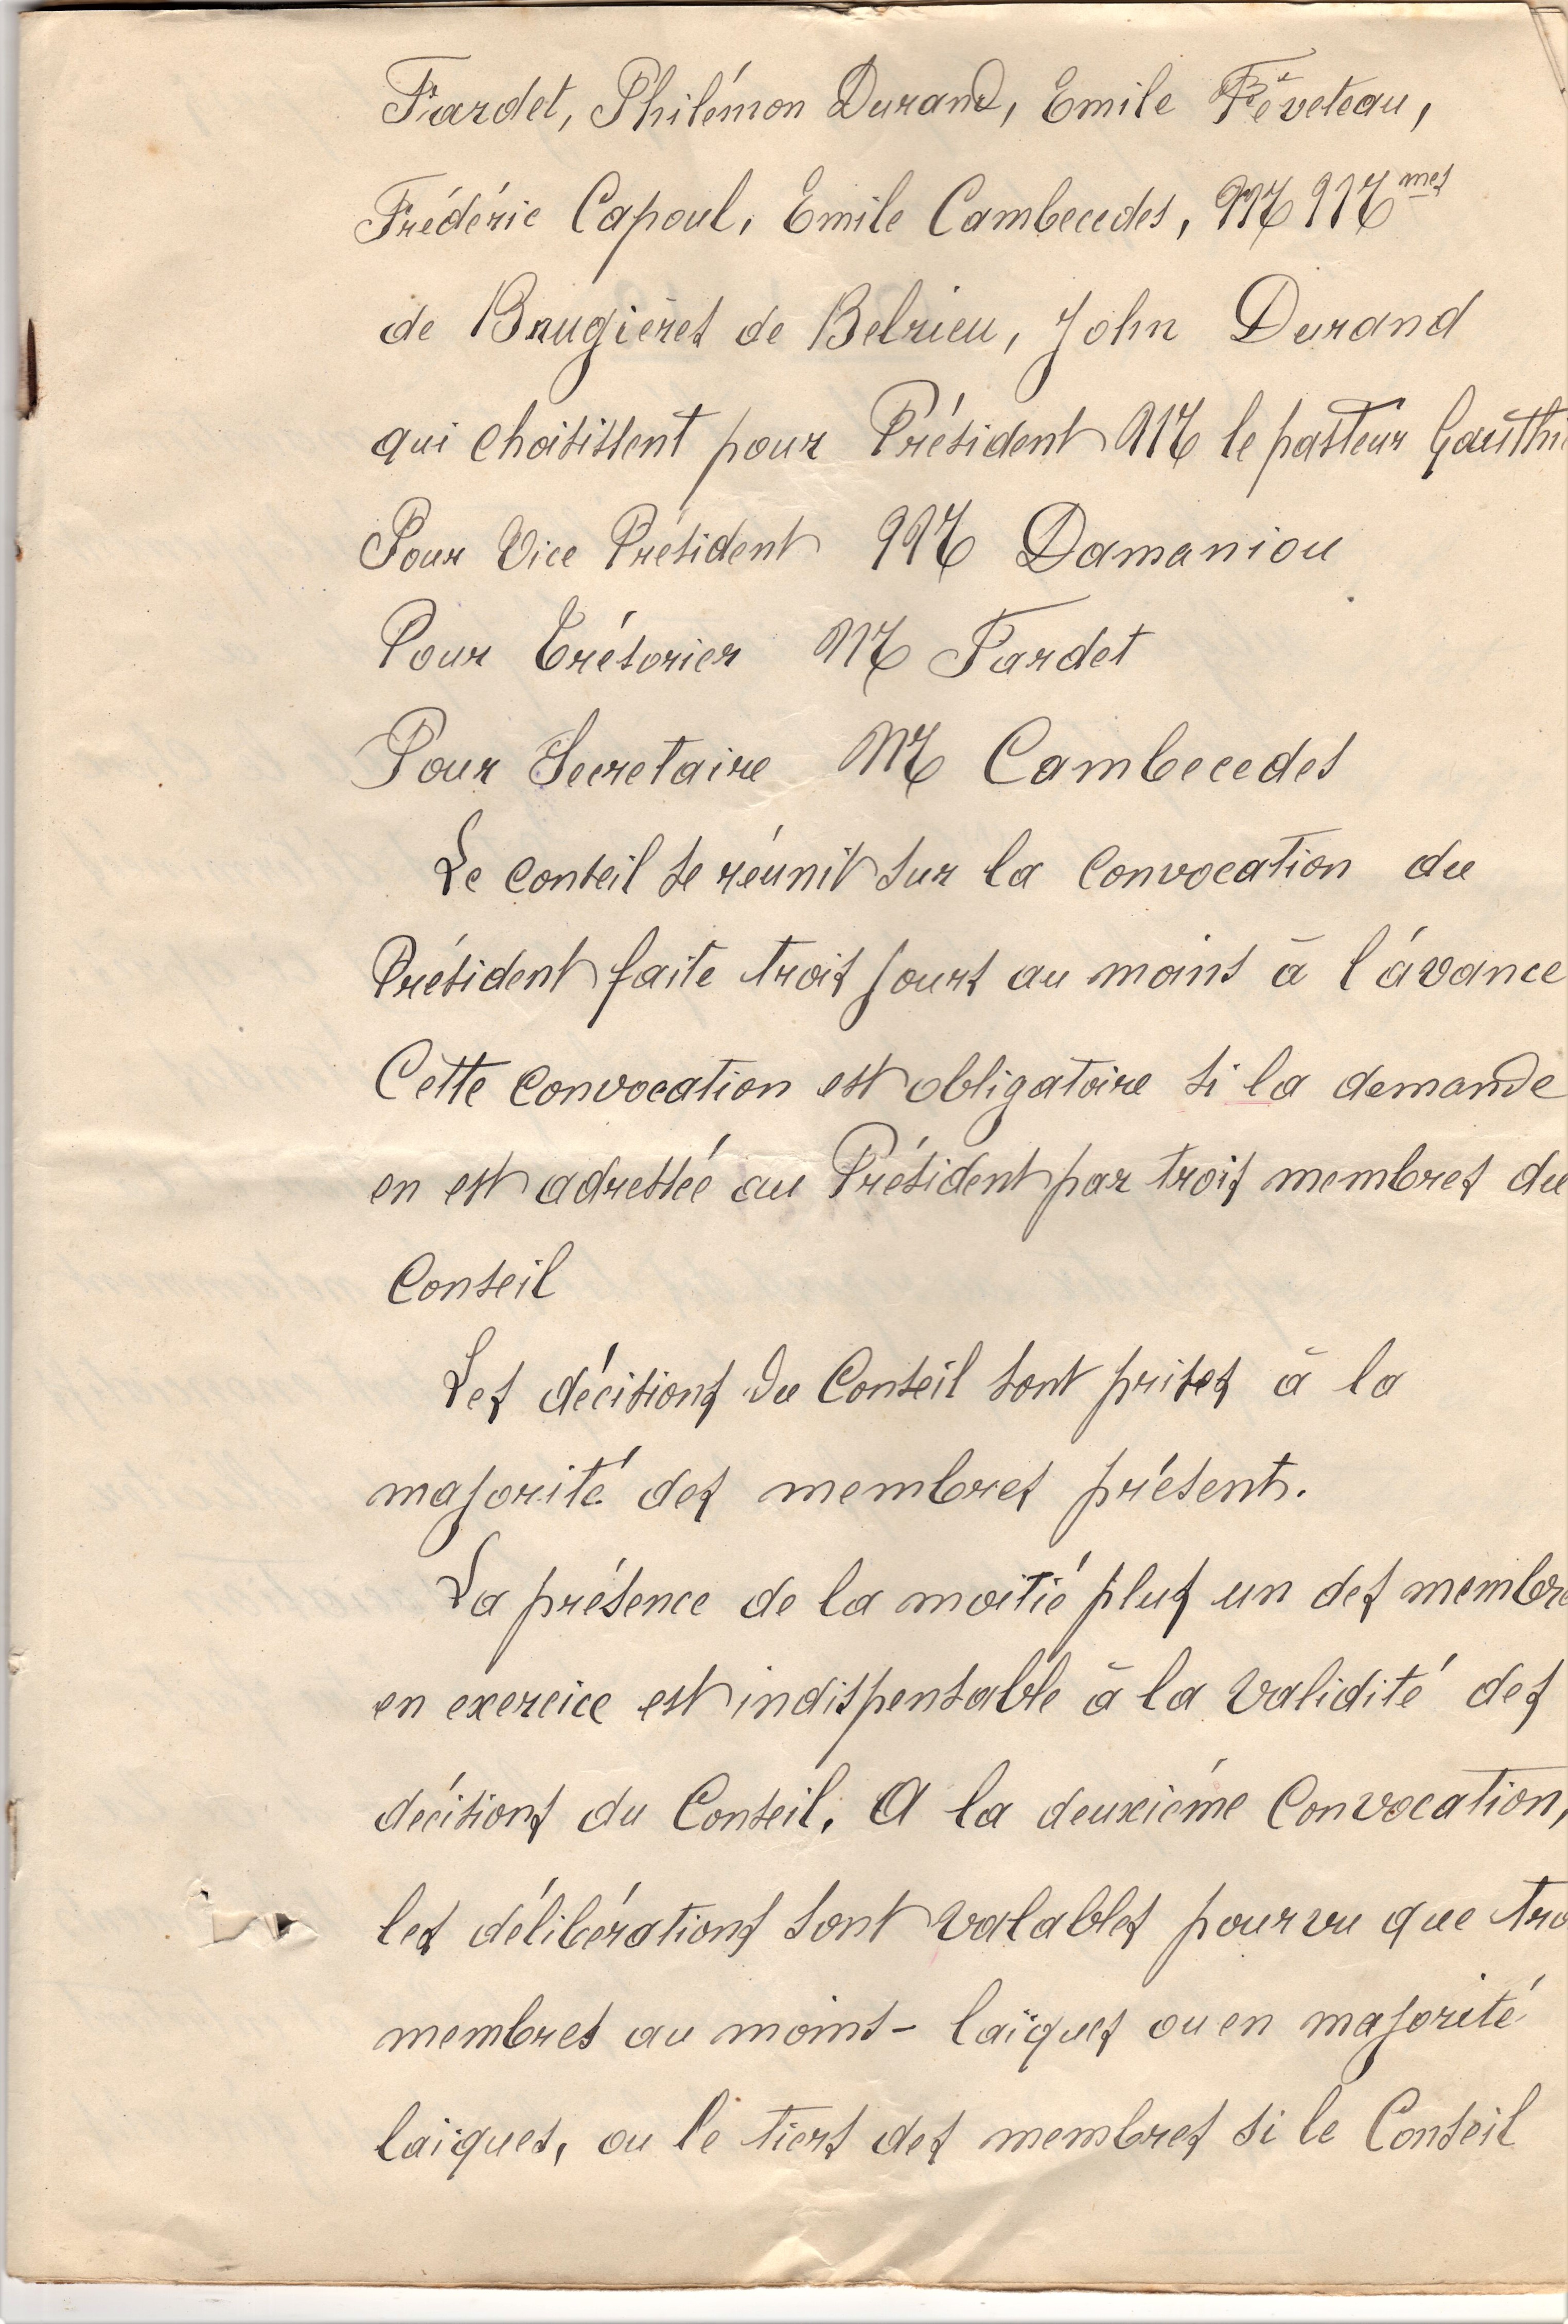 Fardet, Philémon Durand, Emile Féveteau,
Frédéric Capoul, Emile Cambecedes, M M mes
de Brugières de Belrieu, John Durand
qui choisissent pour Président M le pasteur Gauthi
Pour Vice Président M Damaniou
Pour Trésorier M Fardet
Pour Secretaire M Cambecedes
Le conseil se réunit sur la convocation du
Président faite trois jours au moins à l'avance
Cette convocation est obligatoire si la demande
en est adressée au Président par trois membres du
Conseil
Les décisions du Conseil sont prises à la
majorité des membres présents.
La présence de la moitié plus un des membre
en exercice est indispensable à la validité des
décisions du Conseil. A la deuxième convocation,
les délibérations sont valables pourvu que tro
membres au moins - laïques ou en majorité
laïques, ou le tiers des membres si le Conseil